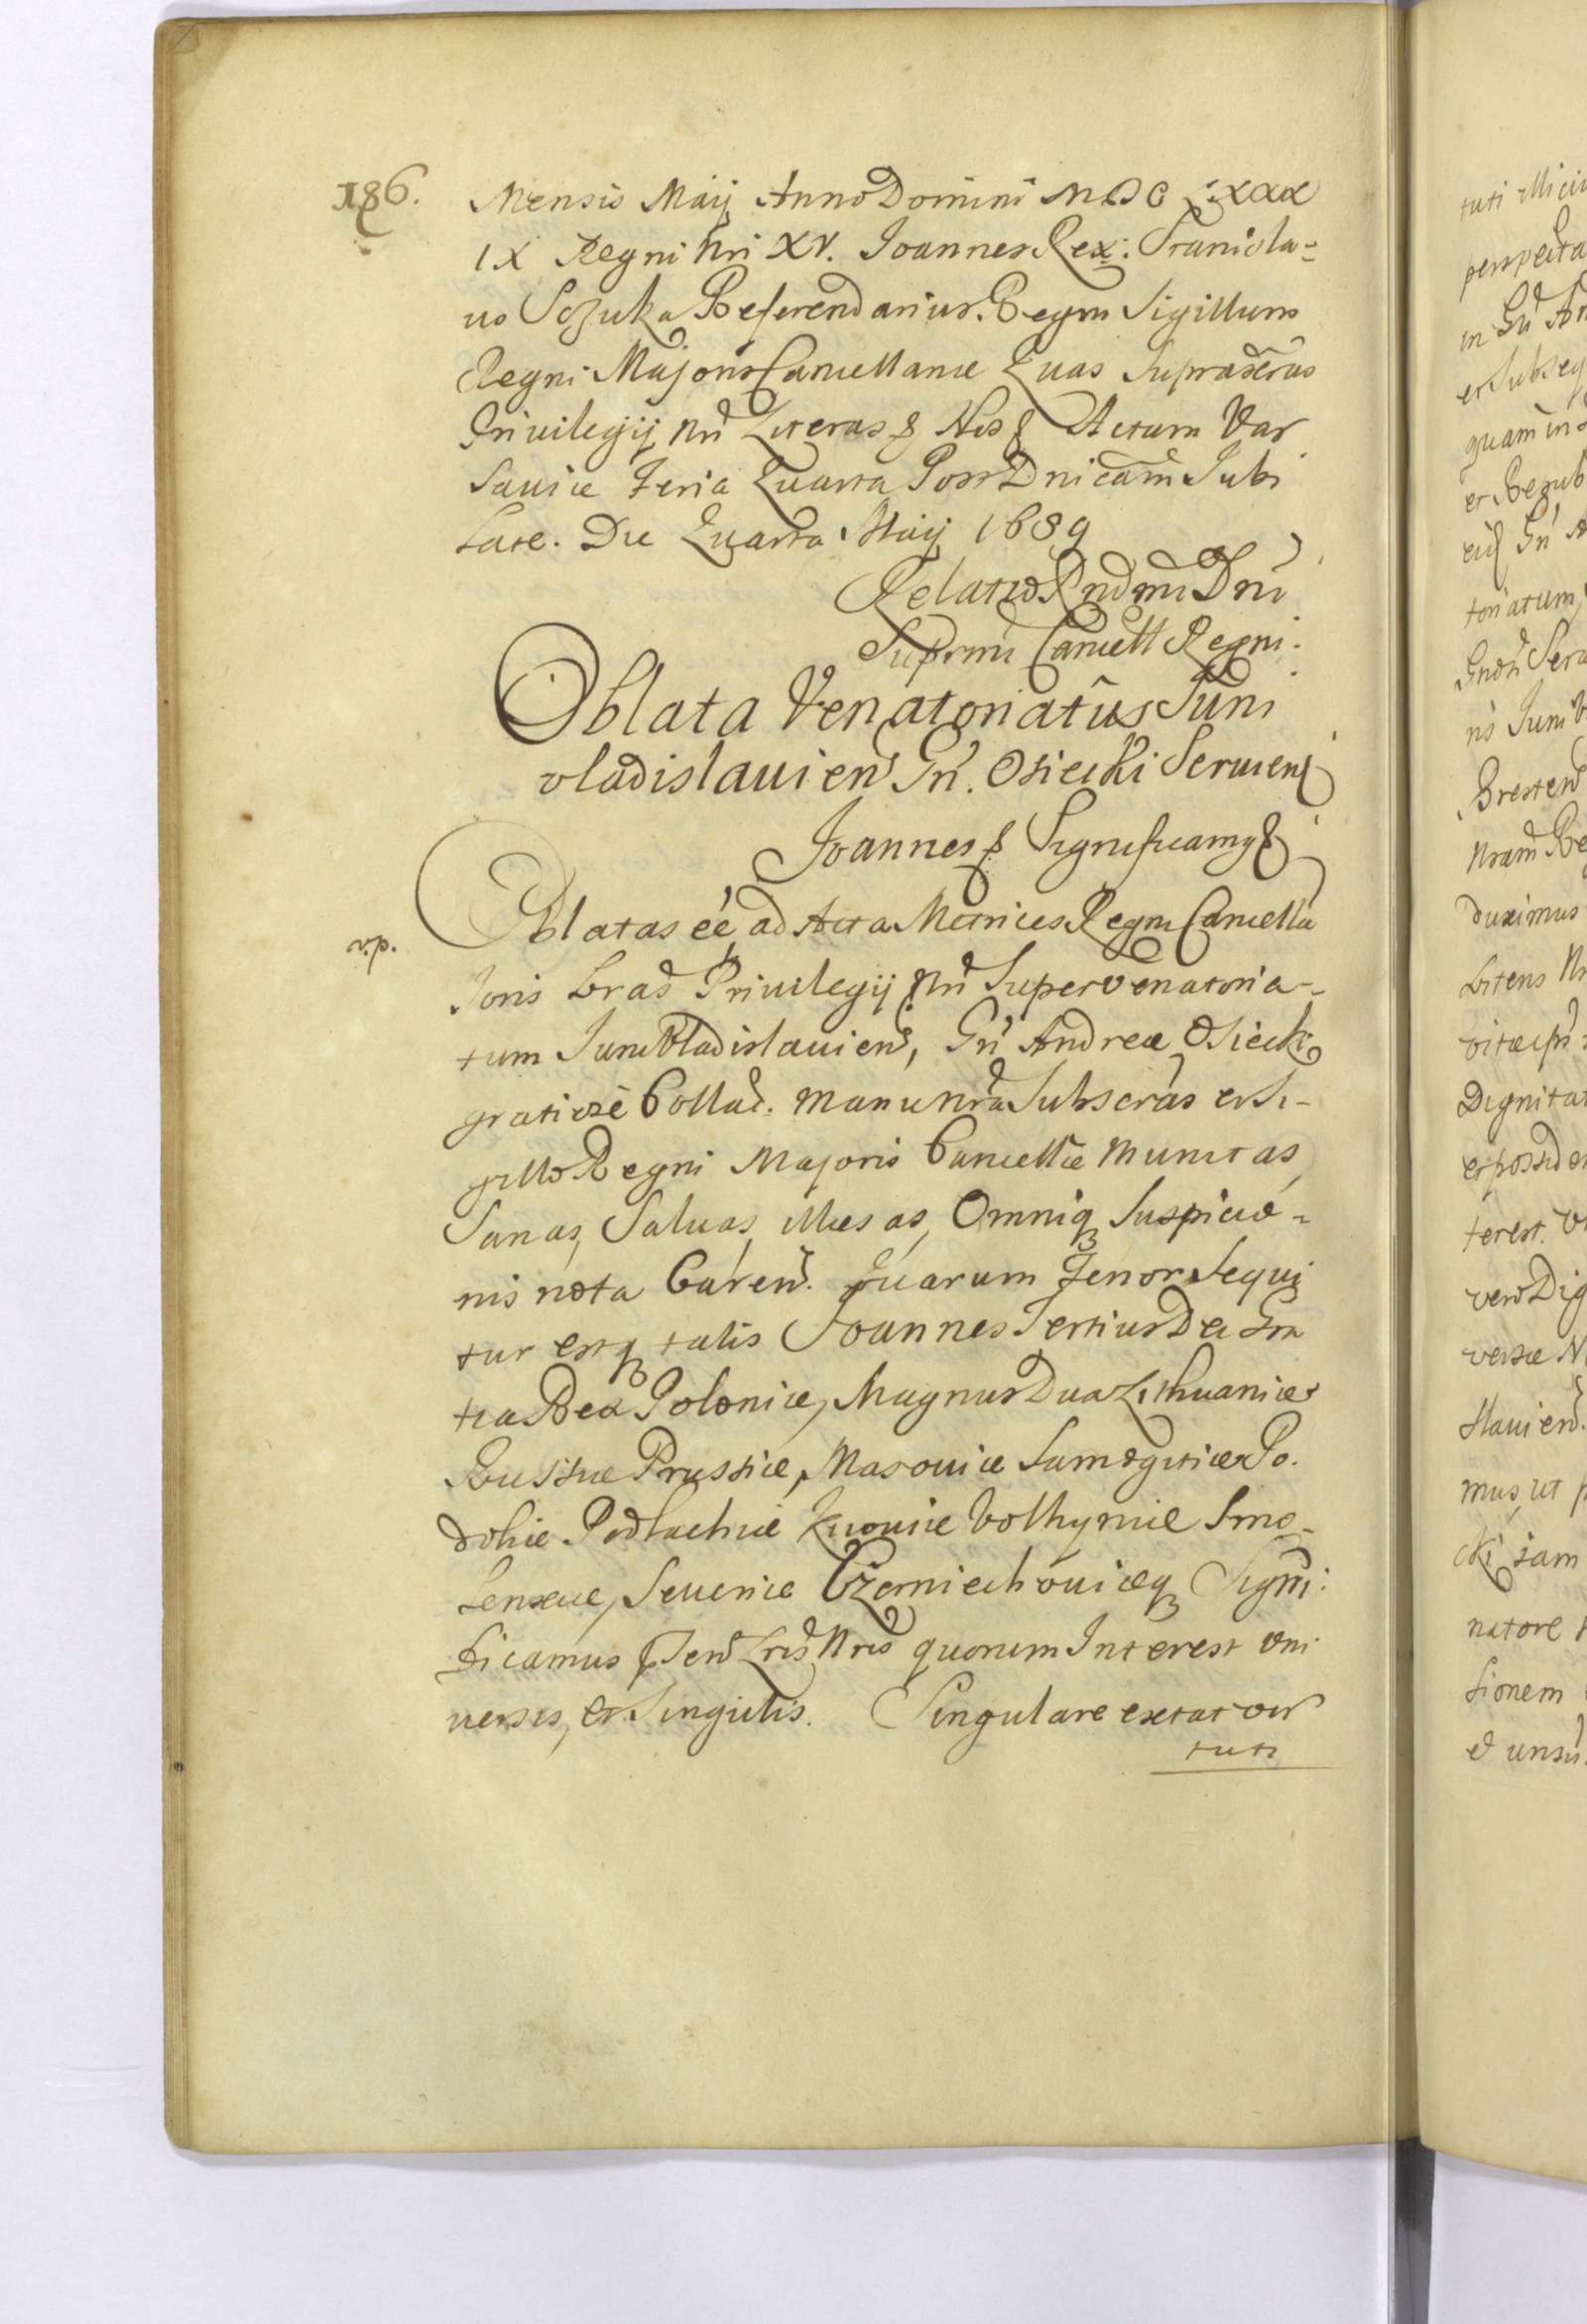 186. Mensis Maij Anno Domini MDC LXXX
IX Regni Nri XV. Joannes Rex. Stanisla=
us Sczuka Referendarius Regni Sigillum
Regni Majoris Cancellariae Quas Supradctas
Privilegij Nri Literas & Nos & Actum Var
saviae Feria Quarta Post Dnicam Jubi
late. Die Quarta Maij 1689
Relatio Rndmi Dni
Supremi Cancell Regni.
Oblata Venatoriatûs Juni
vladislavien Gn. Osiecki Servien
Joannes & Significamg &
v.p. Oblatas eé ad Acta Metrices Regni Cancella
Joris Lras Privilegij Nri Super Venatoria-
tum Junivladislavien, Gn Andreae Osiecki
gratiosè Collat. manu Nra Subscras et Si-
gillo Regni Majoris Cancellae Munitas,
Sanas, Salvas, illaesas, Omniq Suspicio=
nis nota Caren. Quarum Tenor Sequi
tur estq talis Joannes Tertius Dei Gra
tia Rex Poloniae, Magnus Dux Lithuaniae
Russiae Prussiae, Masoviae Samogitiae Po.
doliae Podlachiae Kijoviae Volhyniae Smo-
lensciae, Severiae Czerniechoviaeq Signi:
ficamus Nris quorum Interest Vni
versis, et Singulis. Singulare extat vir
tuti
tuti
perspecta
in Gn
et Subseq
quam in
et Repub
Gn
toriatum
Gnosi
ris Juni
Bresten
Nram
duximus
Litens

Dignitat
et possid
terest.
vero Dig
versae
slavien.
mus, ut
cki jam
natore
sionem